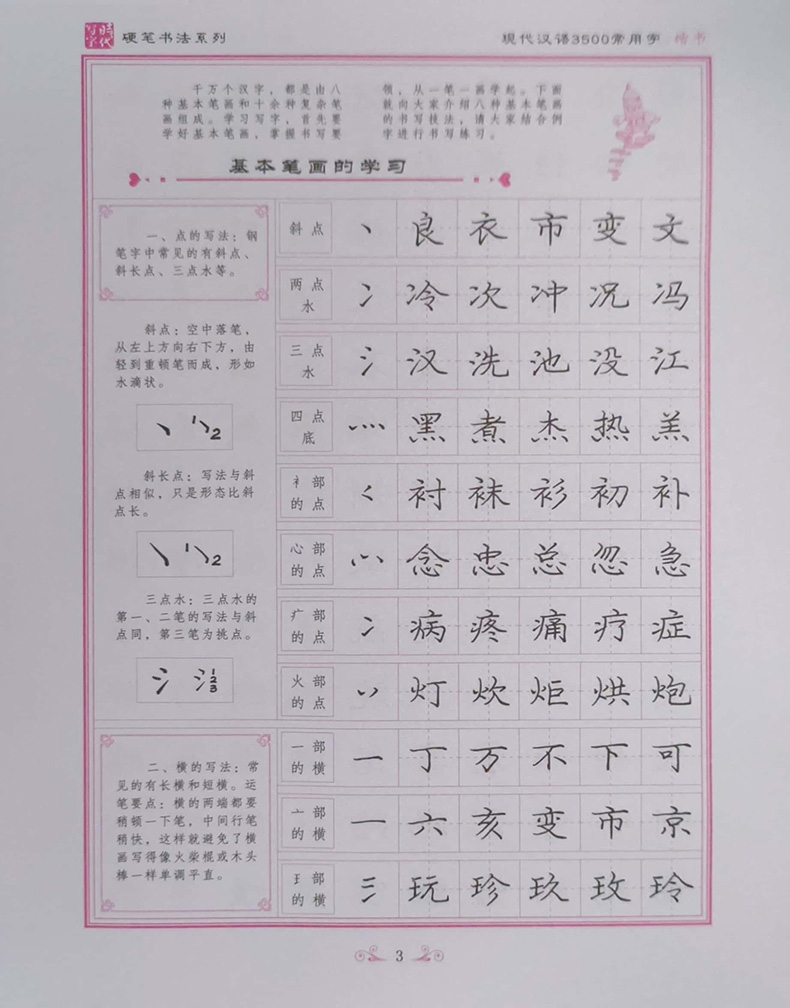 時代写字
硬笔书法系列
现代汉语3500常用字 楷书
千万个汉字，都是由八
种基本笔画和十余种复杂笔
画组成。学习写字，首先要
学好基本笔画，掌握书写要
领，从一笔一画学起。下面
就向大家介绍八种基本笔画
的书写技法，请大家结合例
字进行书写练习。
基本笔画的学习
一、点的写法：钢
笔字中常见的有斜点、
斜长点、三点水等。
斜点：空中落笔、
从左上方向右下方，由
轻到重顿笔而成，形如
水滴状。
丶 1 2
斜长点：写法与斜
点相似，只是形态比斜
点长。
1 2
三点水：三点水的
第一、二笔的写法与斜
点同，第三笔为挑点。
氵 氵 1 2 3
二、横的写法：常
见的有长横和短横。运
笔要点：横的两端都要
稍顿一下笔，中间行笔
稍快，这样就避免了横
画写得像火柴棍或木头
棒一样单调平直。
斜点 丶 良 衣 市 变 文
两点
水 冫 冷 次 冲 况 冯
三点
水 氵 汉 洗 池 没 江
四点
底 灬 黑 煮 杰 热 羔
衤部
的点 衬 袜 衫 初 补
心部
的点 念 忠 总 忽 急
疒部
的点 冫 病 疼 痛 疗 症
火部
的点 灯 炊 炬 烘 炮
一部
的横 一 丁 万 不 下 可
亠部
的横 一 六 亥 变 市 京
王部
的横 玩 珍 玖 玫 玲
3